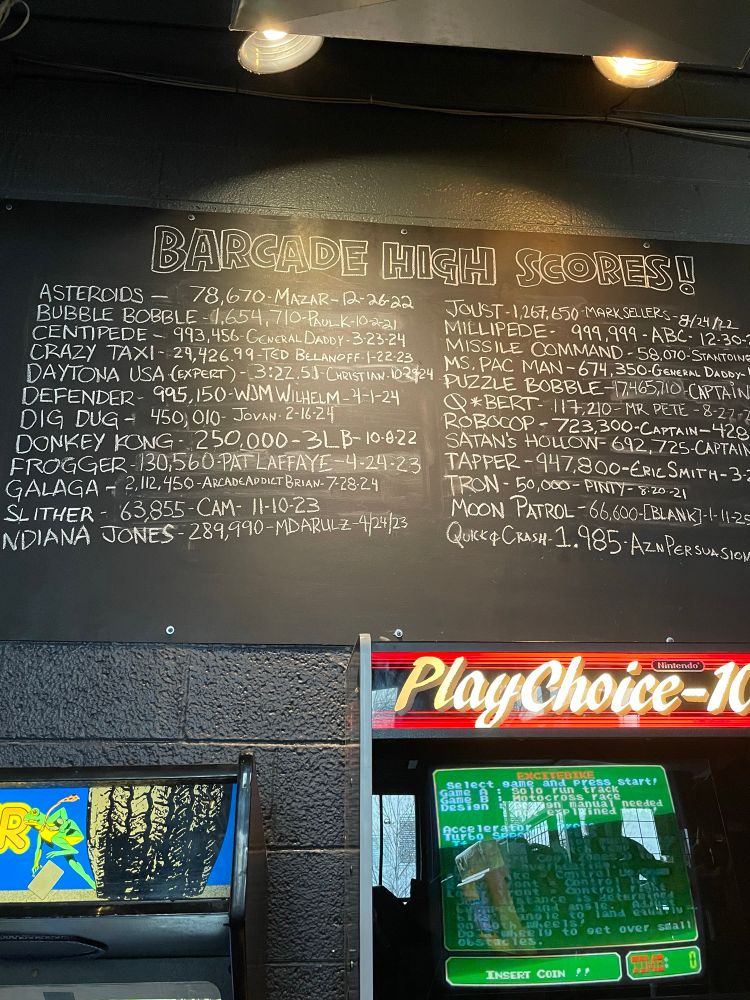 BARCADE HIGH SCORES!
ASTEROIDS - 78,670 - MAZAR - 12-26-22
BUBBLE BOBBLE - 1,654,710 - PAUL K - 10-2-21
CENTIPEDE - 993,456 - GENERAL DADDY - 3-23-24
CRAZY TAXI - 29,426.99 - TED BELANOFF - 1-22-23
DAYTONA USA (EXPERT) - 3:22.51 - CHRISTIAN - 10-29-24
DEFENDER - 995,150 - WJM WILHELM - 4-1-24
DIG DUG - 450,010 - JOVAN - 2-16-24
DONKEY KONG - 250,000 - 3LB - 10-8-22
FROGGER - 130,560 - PAT LAFFAYE - 4-24-23
GALAGA - 2,112,450 - ARCADEADDICT BRIAN - 7-28-24
SLITHER - 63,855 - CAM - 11-10-23
NDIANA JONES - 289,990 - MDARULZ - 4/24/23
JOUST - 1,267,650 - MARK SELLERS - 8/24/22
MILLIPEDE - 999,999 - ABC - 12-30-
MISSILE COMMAND - 58,070 - STANTOIN
MS. PAC MAN - 674,350 - GENERAL DADDY -
PUZZLE BOBBLE - 17,465,710 - CAPTAIN
Q*BERT - 117,210 - MR PETE - 8-27-
ROBOCOP - 723,300 - CAPTAIN - 428
SATAN'S HOLLOW - 692,725 - CAPTAIN
TAPPER - 947,800 - ERIC SMITH - 3-2
TRON - 50,000 - PINTY - 8-20-21
MOON PATROL - 66,600 - [BLANK] - 1-11-25
QUICK & CRASH - 1.985 - AZN PERSUASION
Nintendo
PlayChoice-10
R
EXCITEBIKE
Select game and press start!
Game A : Solo run track
Game B : Motocross race
Design : Design manual needed
explained
Accelerator
Turbo
angle to land equally
on both wheels.
Do a wheelie to get over small
obstacles.
INSERT COIN !!
TIME: 0